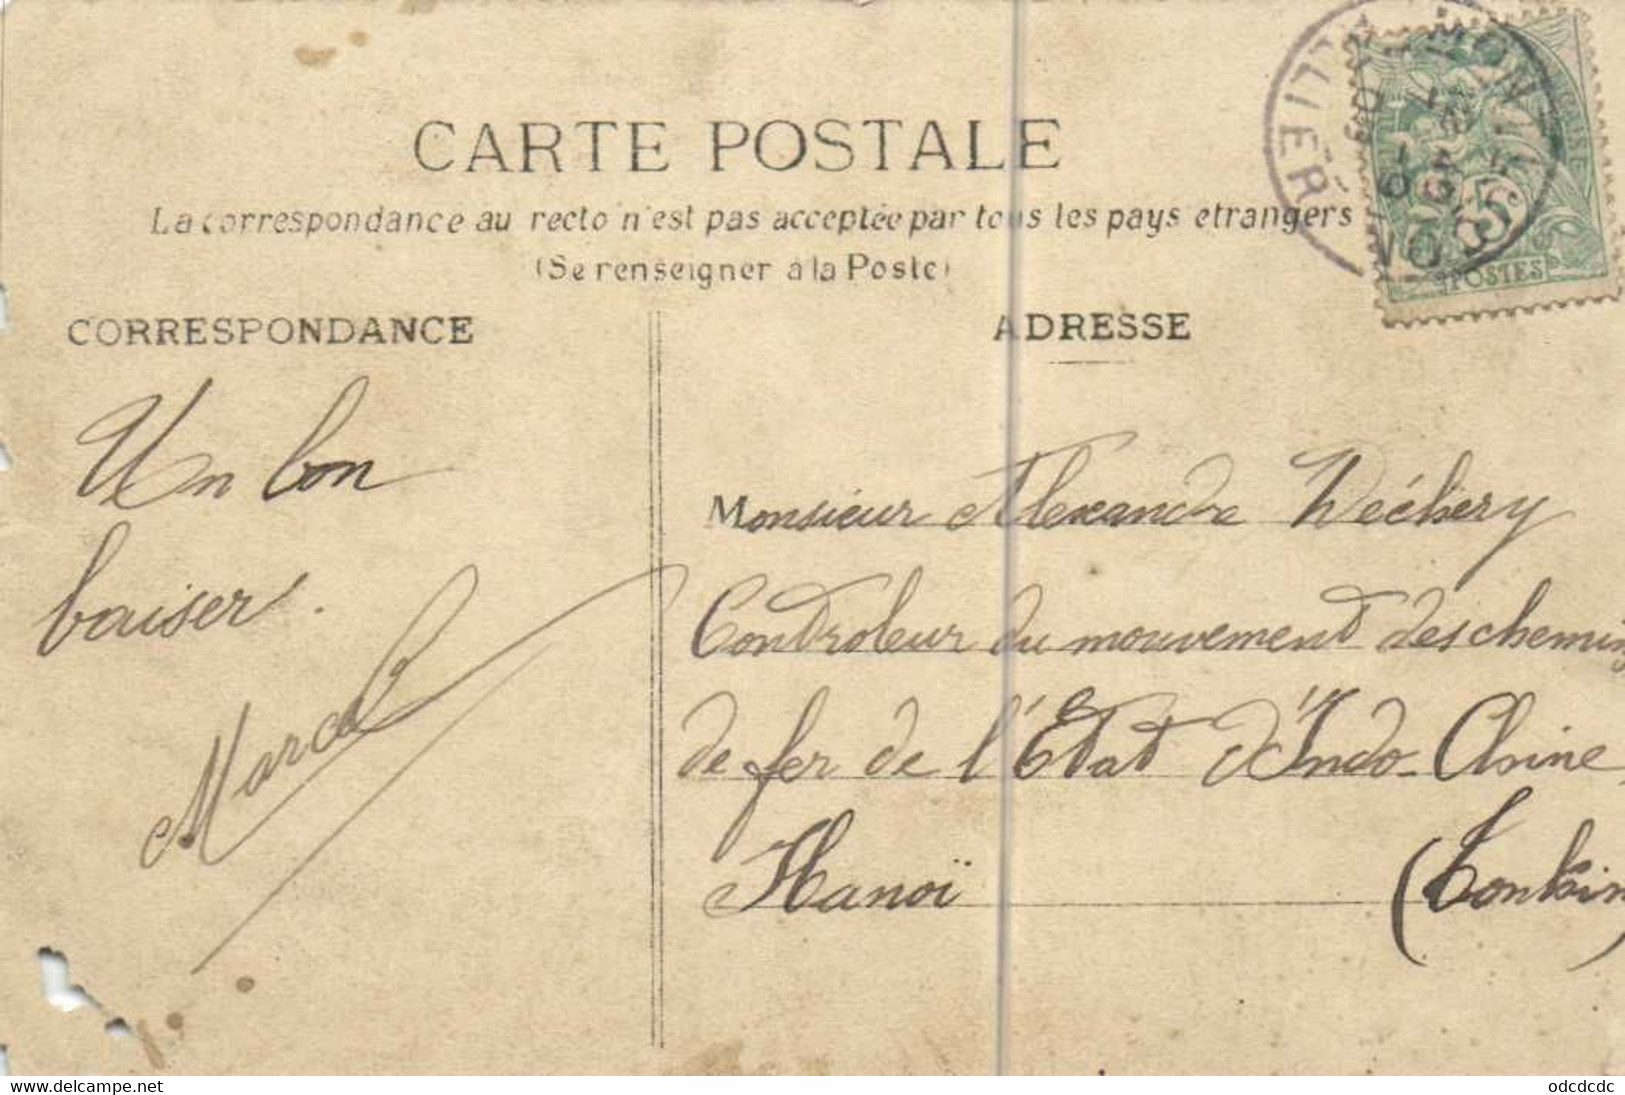 CARTE POSTALE
La correspondance au recto n'est pas acceptée par tous les pays etrangers
(Se renseigner à la Poste)
CORRESPONDANCE
ADRESSE
Un bon
baiser.
Marcel
Monsieur Alexandre
Controleur du mouvement des chemins
de fer de l'Etat d'Indo-Chine
Hanoï (Tonkin
5c
POSTES
www.delcampe.net
odcdcdc